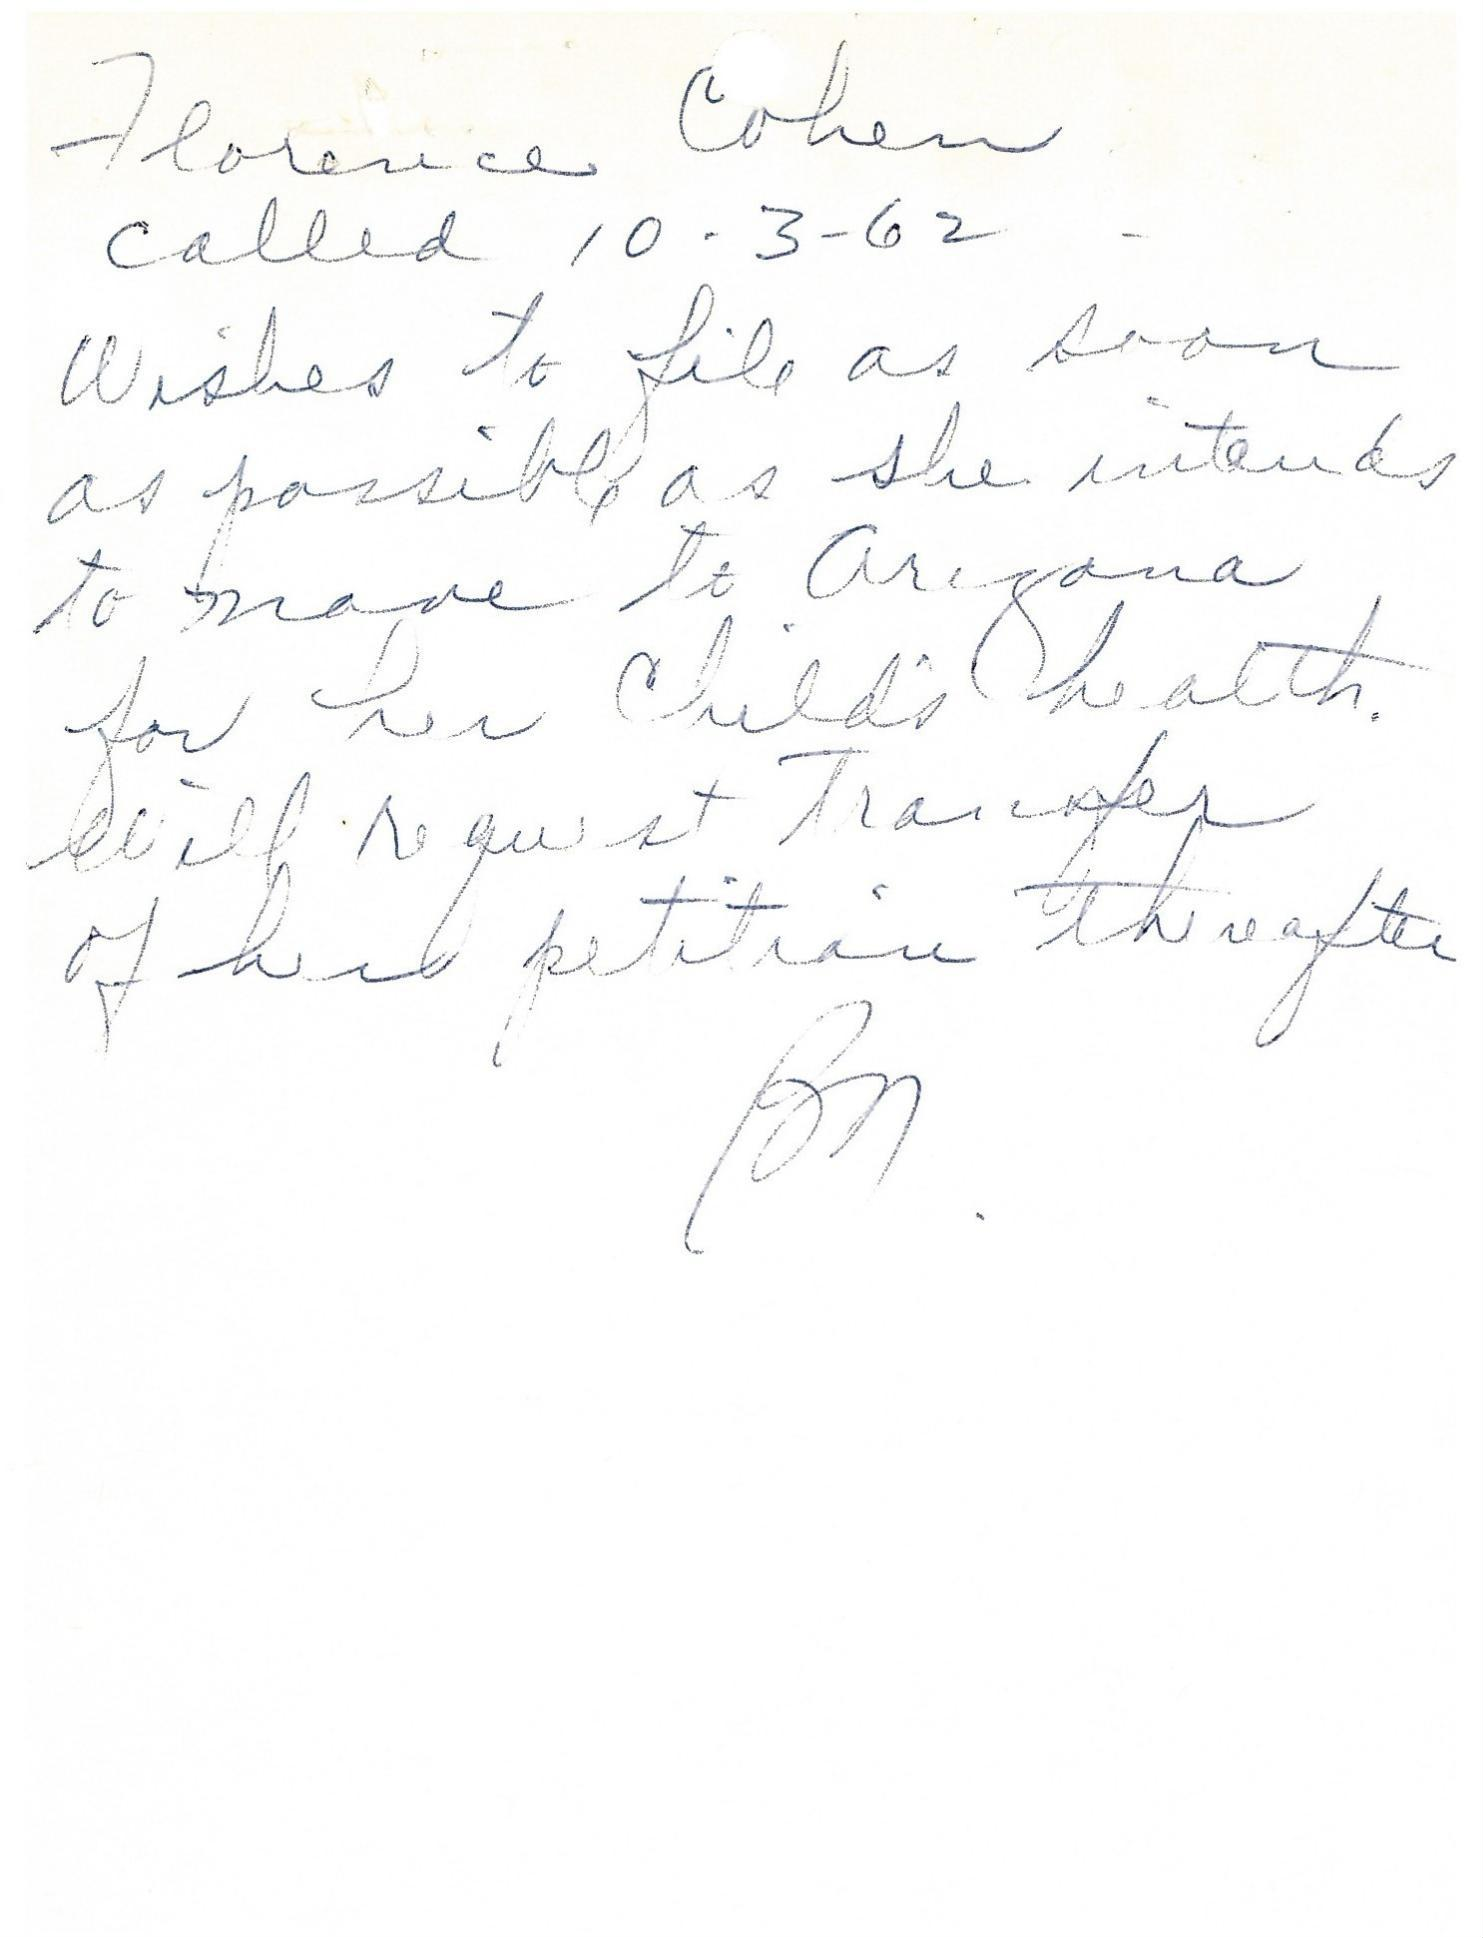 Florence Cohen
called 10-3-62 -
Wishes to file as soon
as possible as she intends
to move to Arizona
for her child's health.
Will request transfer
of her petition thereafter